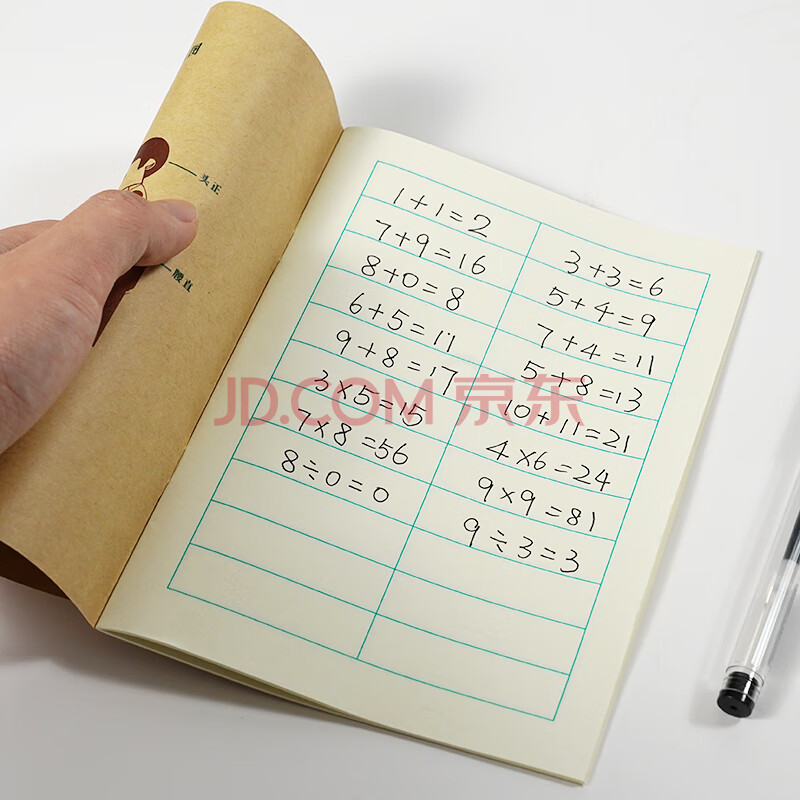 头正
腰直
1+1=2
7+9=16
8+0=8
6+5=11
9+8=17
3×5=15
7×8=56
8÷0=0
3+3=6
5+4=9
7+4=11
5+8=13
10+11=21
4×6=24
9×9=81
9÷3=3
JD.COM 京东